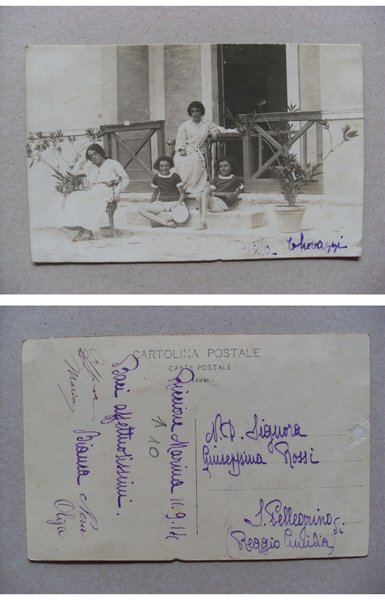 Villa Chovazzi
CARTOLINA POSTALE
CARTE POSTALE
Riccione Marina 11.9.14
10
Baci affettuosissimi.
Maria
Bianca Nera
Olga
N. D. Signora
Giuseppina Rossi
S. Pellegrino di
(Reggio Emilia)